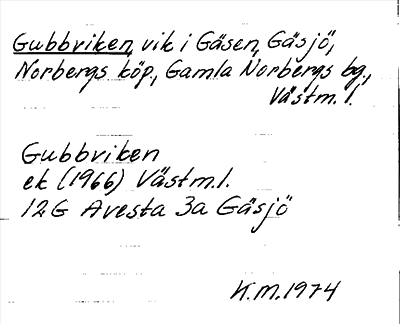 Gubbviken, vik i Gäsen, Gäsjö,
Norbergs köp., Gamla Norbergs bg.,
Västm. l.
Gubbviken
ek (1966) Västm.l.
12G Avesta 3a Gäsjö
K.M.1974